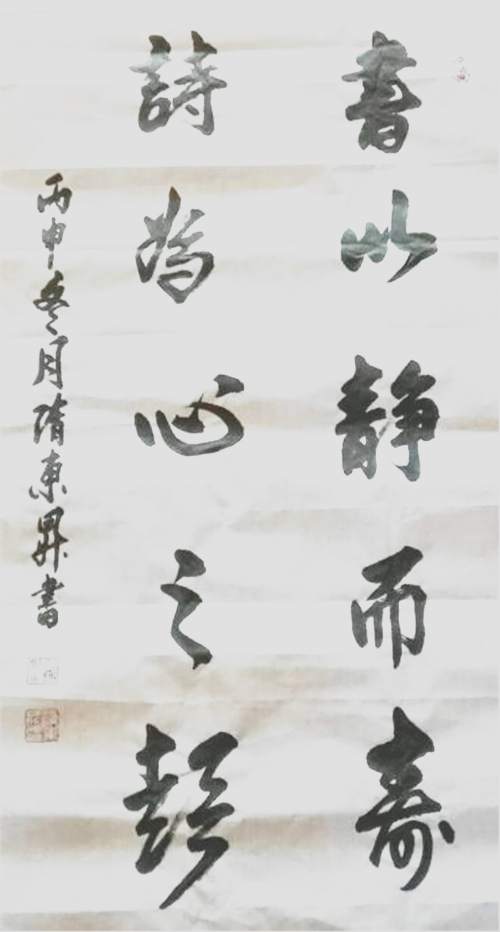 書以静而壽
詩為心之聲
丙申冬月隋東昇書